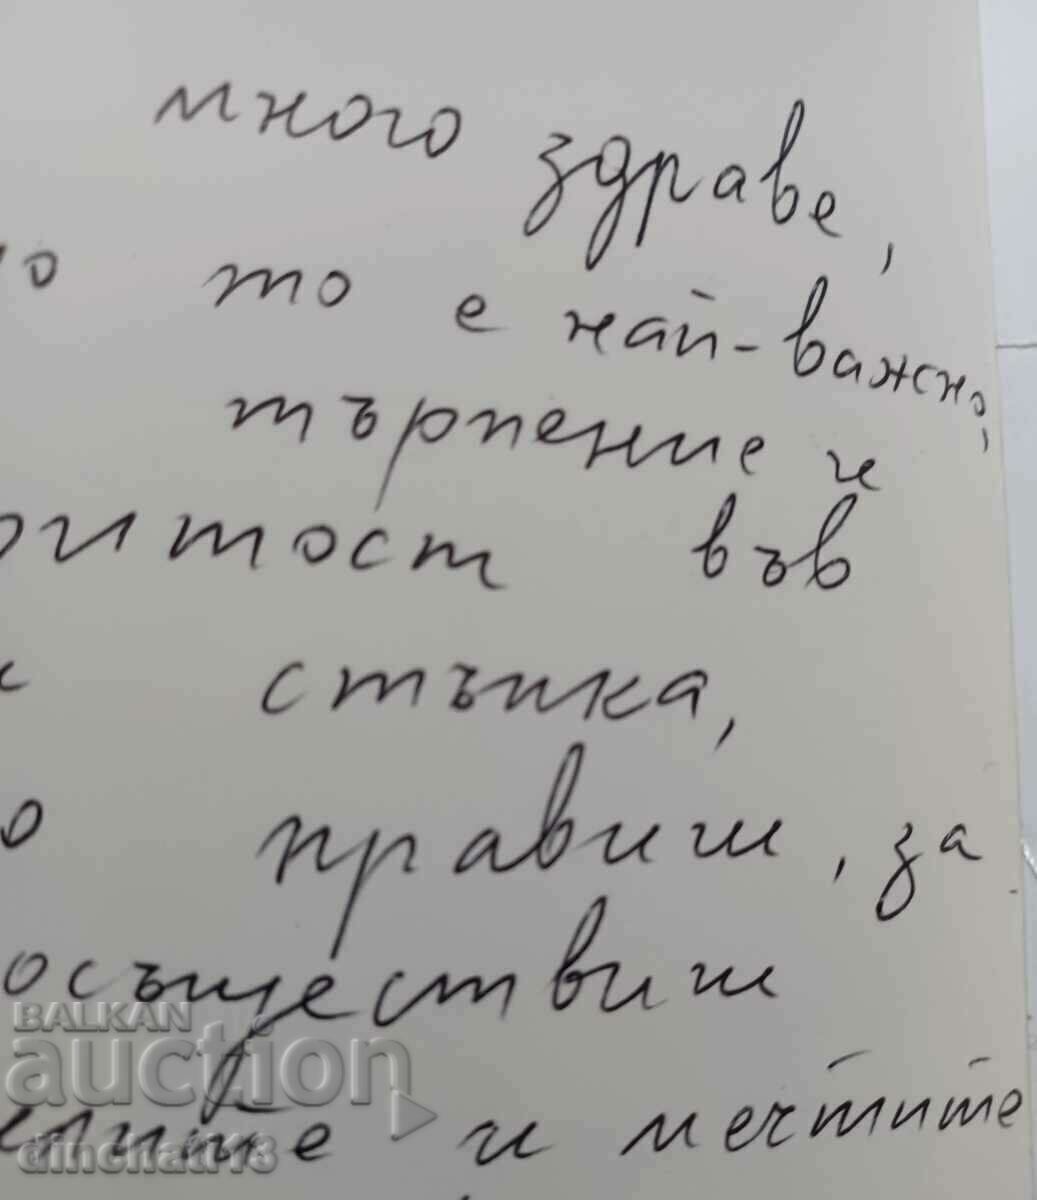 много здраве,
то е най-важно,
търпение и
ритост във
стъпка,
правиш, за
осъществиш
и мечтите
BALKAN
auction
dinchat13